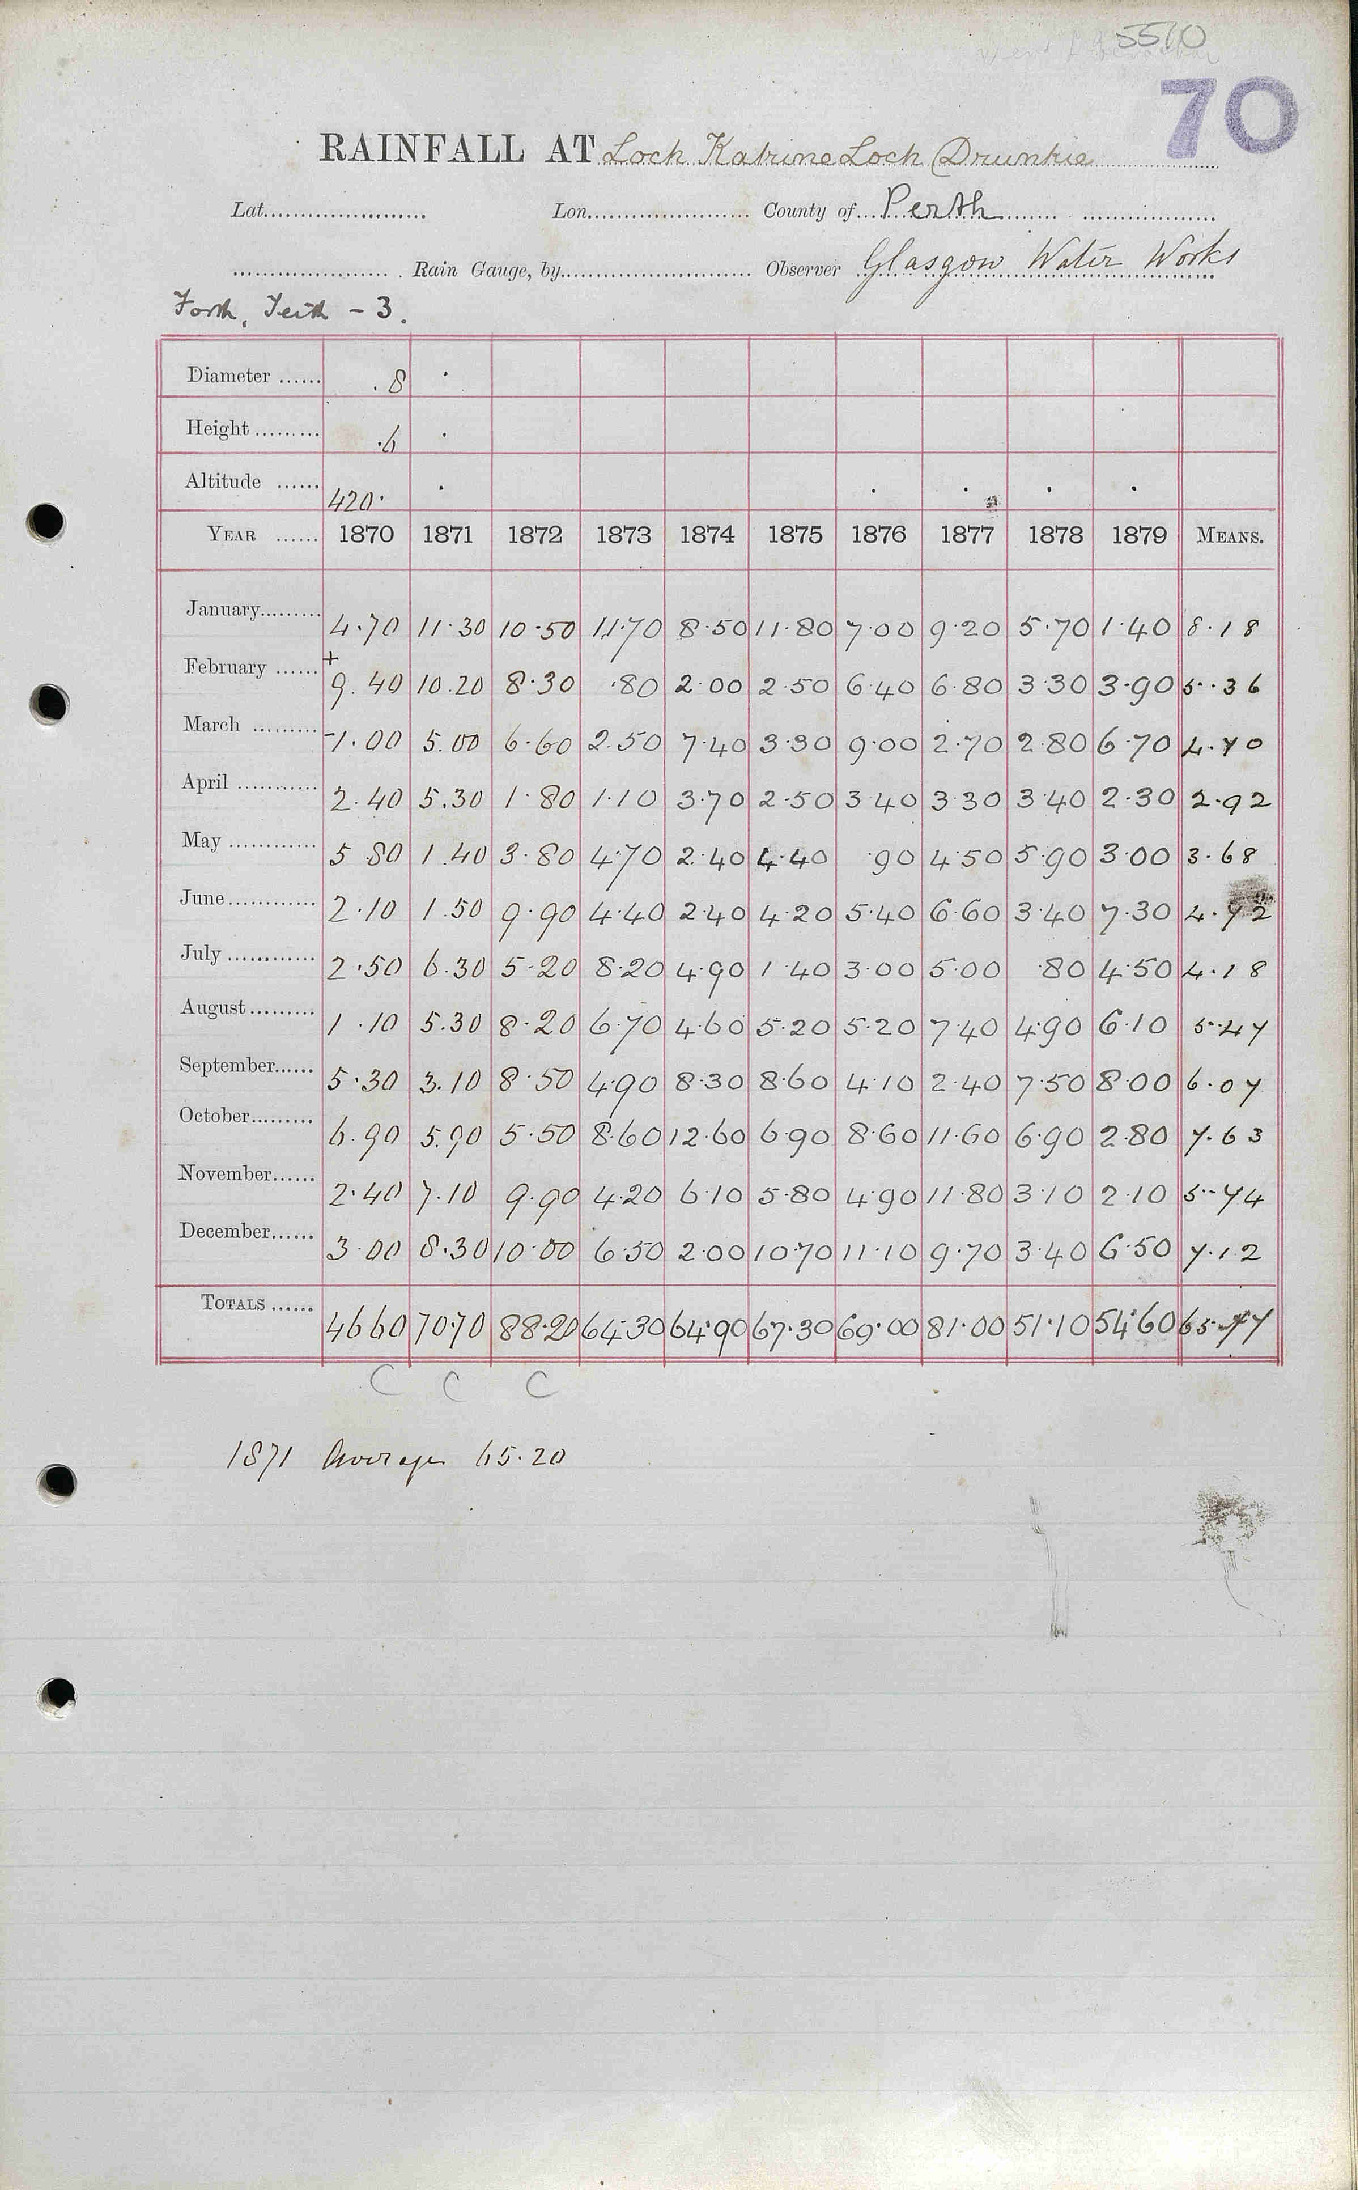 5510
70
RAINFALL AT Loch Katrine Loch Drunkie
Lat. Lon. County of Perth
Rain Gauge, by Observer Glasgow Water Works
Forth, Teith - 3.
Diameter ...... .8
Height ......... .6
Altitude ...... 420
YEAR ...... 1870 1871 1872 1873 1874 1875 1876 1877 1878 1879 MEANS.
January......... 4.70 11.30 10.50 11.70 8.50 11.80 7.00 9.20 5.70 1.40 8.18
February ...... + 9.40 10.20 8.30 .80 2.00 2.50 6.40 6.80 3.30 3.90 5.36
March ......... -1.00 5.00 6.60 2.50 7.40 3.30 9.00 2.70 2.80 6.70 4.70
April ............ 2.40 5.30 1.80 1.10 3.70 2.50 3.40 3.30 3.40 2.30 2.92
May ............. 5.80 1.40 3.80 4.70 2.40 4.40 .90 4.50 5.90 3.00 3.68
June............. 2.10 1.50 9.90 4.40 2.40 4.20 5.40 6.60 3.40 7.30 4.72
July ............. 2.50 6.30 5.20 8.20 4.90 1.40 3.00 5.00 .80 4.50 4.18
August ......... 1.10 5.30 8.20 6.70 4.60 5.20 5.20 7.40 4.90 6.10 5.47
September...... 5.30 3.10 8.50 4.90 8.30 8.60 4.10 2.40 7.50 8.00 6.07
October......... 6.90 5.90 5.50 8.60 12.60 6.90 8.60 11.60 6.90 2.80 7.63
November...... 2.40 7.10 9.90 4.20 6.10 5.80 4.90 11.80 3.10 2.10 5.74
December...... 3.00 8.30 10.00 6.50 2.00 10.70 11.10 9.70 3.40 6.50 7.12
TOTALS ...... 46.60 70.70 88.20 64.30 64.90 67.30 69.00 81.00 51.10 54.60 65.77
C C C
1871 Average 65.20